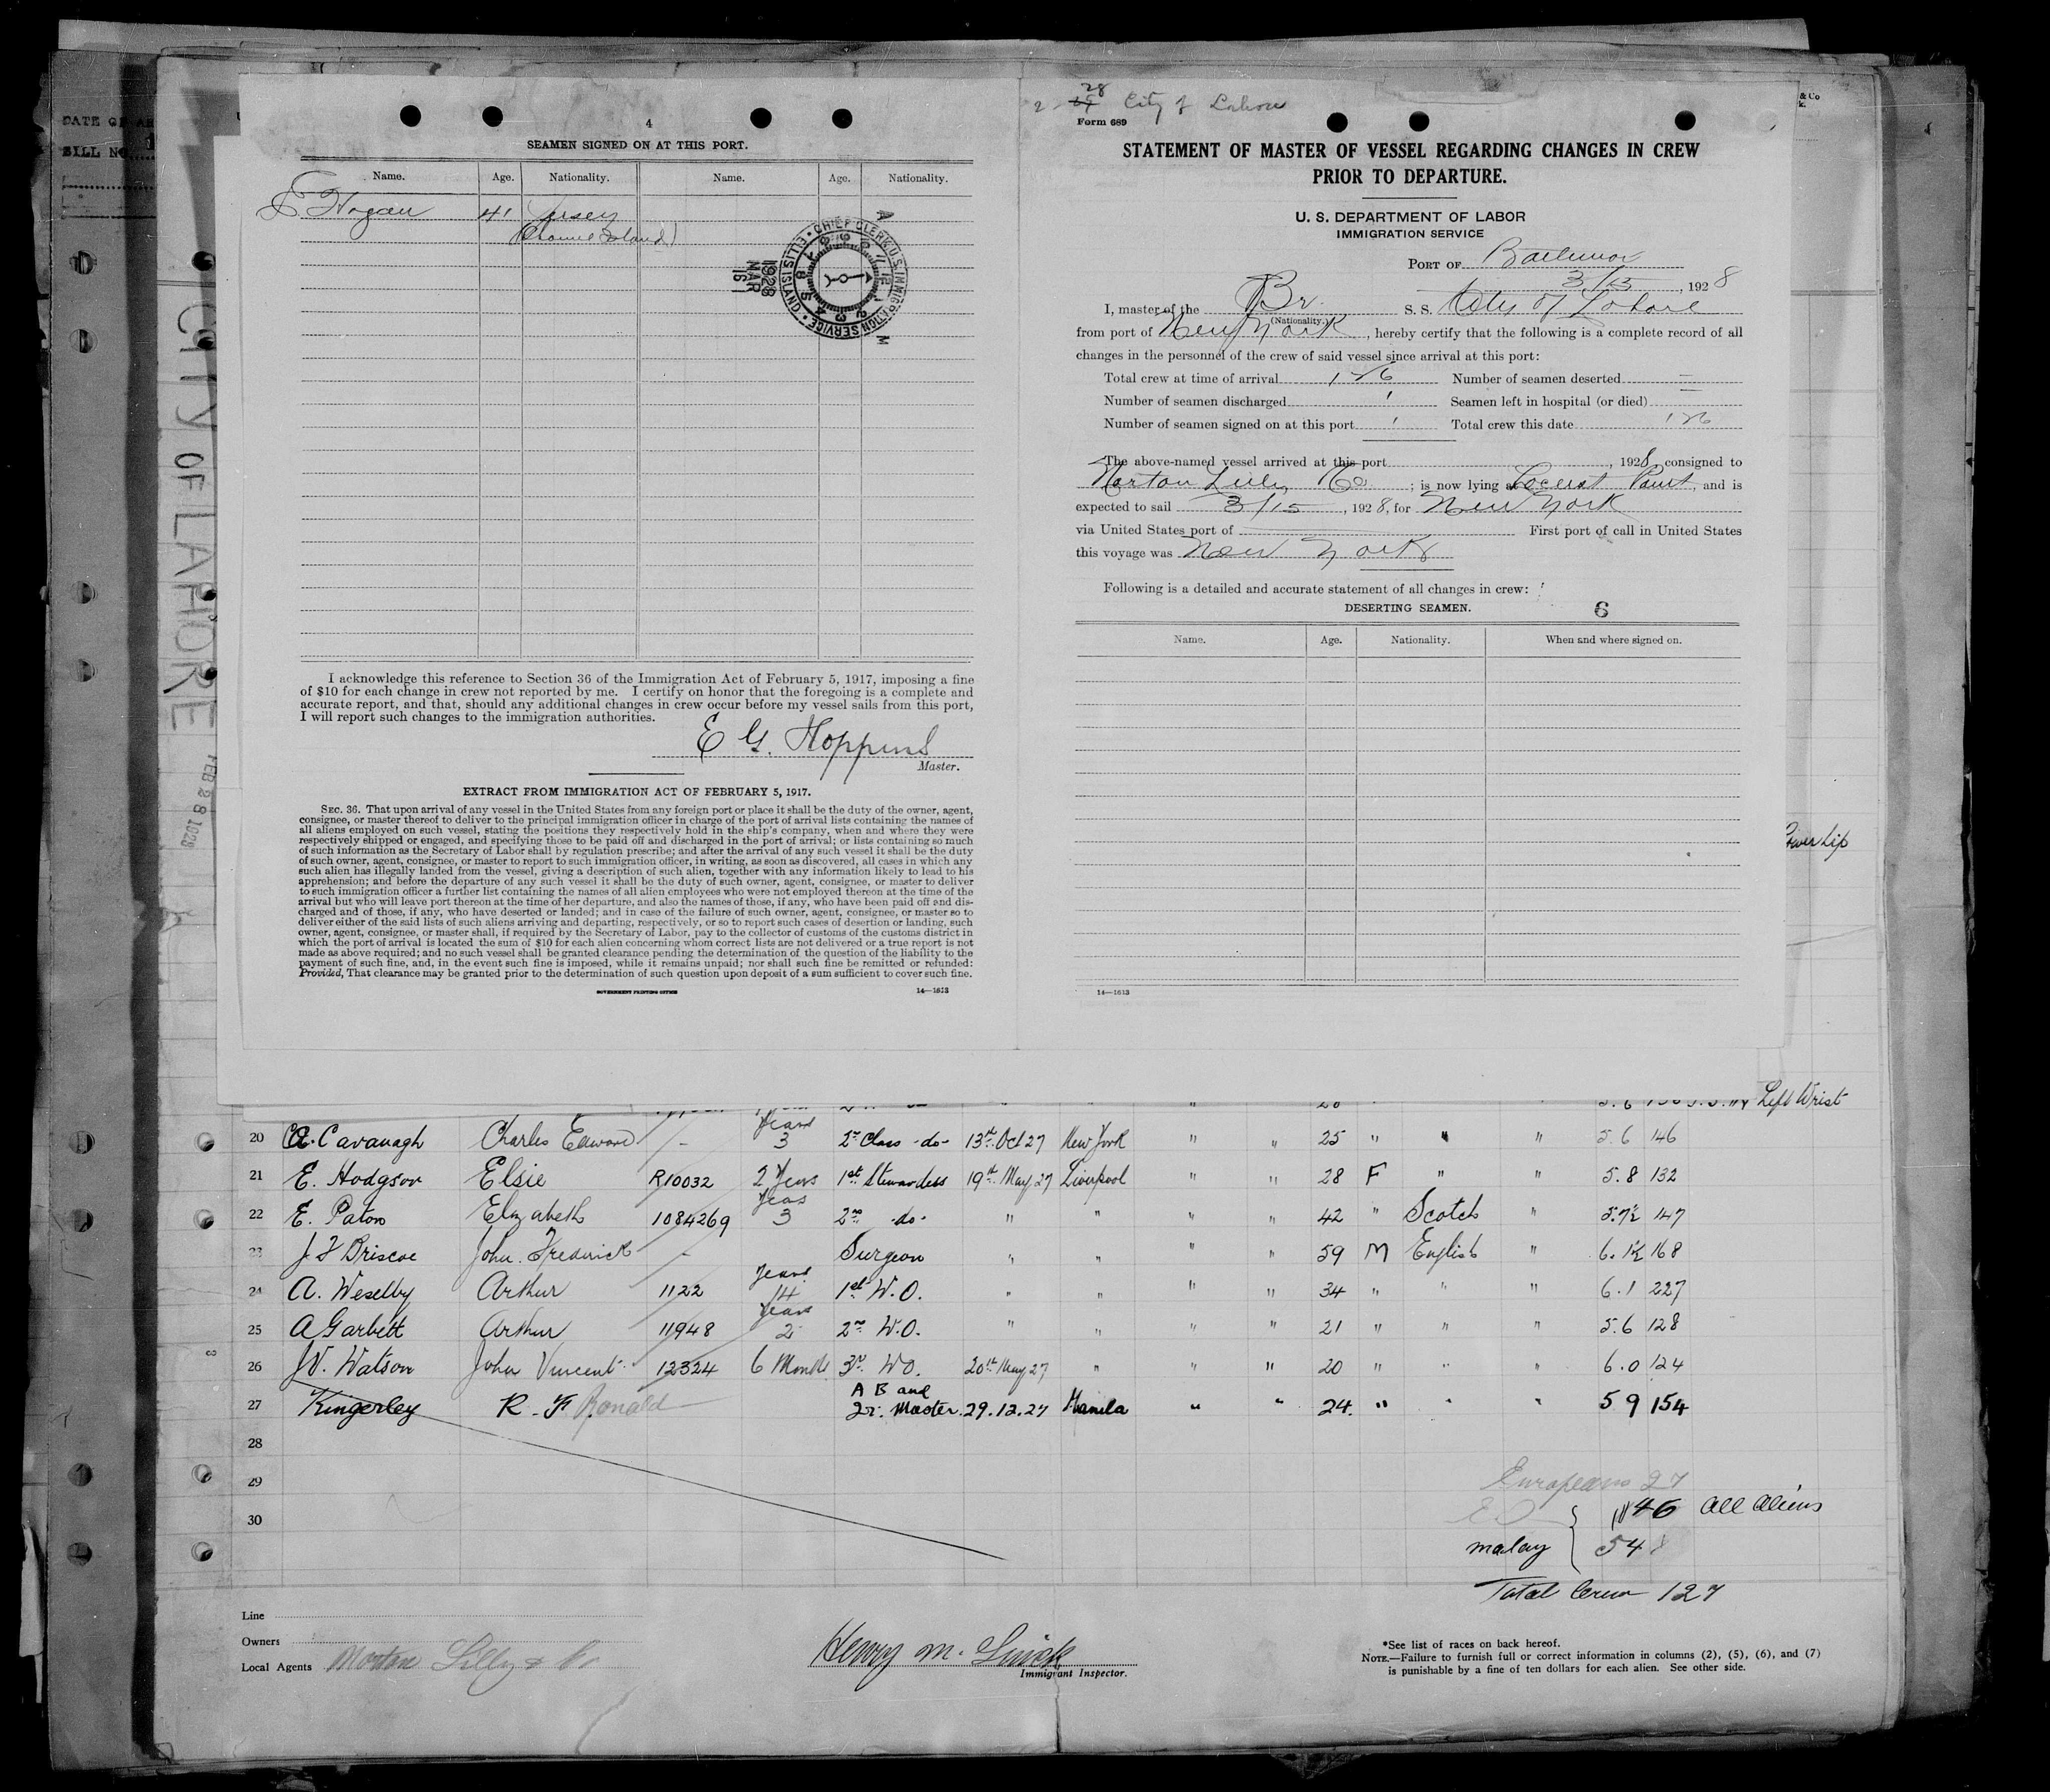 DATE OF AR
BILL NO.
CITY OF LAHORE
FEB 28 1928
4
SEAMEN SIGNED ON AT THIS PORT.
Name. Age. Nationality. Name. Age. Nationality.
Hogan 41 Jersey
(Channel Island)
CHIEF CLERK U.S. IMMIGRATION SERVICE • ELLIS ISLAND •
1928 MAR 16 A M
I acknowledge this reference to Section 36 of the Immigration Act of February 5, 1917, imposing a fine
of $10 for each change in crew not reported by me. I certify on honor that the foregoing is a complete and
accurate report, and that, should any additional changes in crew occur before my vessel sails from this port,
I will report such changes to the immigration authorities.
E G. Hoppins
Master.
EXTRACT FROM IMMIGRATION ACT OF FEBRUARY 5, 1917.
SEC. 36. That upon arrival of any vessel in the United States from any foreign port or place it shall be the duty of the owner, agent,
consignee, or master thereof to deliver to the principal immigration officer in charge of the port of arrival lists containing the names of
all aliens employed on such vessel, stating the positions they respectively hold in the ship's company, when and where they were
respectively shipped or engaged, and specifying those to be paid off and discharged in the port of arrival; or lists containing so much
of such information as the Secretary of Labor shall by regulation prescribe; and after the arrival of any such vessel it shall be the duty
of such owner, agent, consignee, or master to report to such immigration officer, in writing, as soon as discovered, all cases in which any
such alien has illegally landed from the vessel, giving a description of such alien, together with any information likely to lead to his
apprehension; and before the departure of any such vessel it shall be the duty of such owner, agent, consignee, or master to deliver
to such immigration officer a further list containing the names of all alien employees who were not employed thereon at the time of the
arrival but who will leave port thereon at the time of her departure, and also the names of those, if any, who have been paid off and dis-
charged and of those, if any, who have deserted or landed; and in case of the failure of such owner, agent, consignee, or master so to
deliver either of the said lists of such aliens arriving and departing, respectively, or so to report such cases of desertion or landing, such
owner, agent, consignee, or master shall, if required by the Secretary of Labor, pay to the collector of customs of the customs district in
which the port of arrival is located the sum of $10 for each alien concerning whom correct lists are not delivered or a true report is not
made as above required; and no such vessel shall be granted clearance pending the determination of the question of the liability to the
payment of such fine, and, in the event such fine is imposed, while it remains unpaid; nor shall such fine be remitted or refunded:
Provided, That clearance may be granted prior to the determination of such question upon deposit of a sum sufficient to cover such fine.
GOVERNMENT PRINTING OFFICE 14—1613
28 City of Lahore
Form 689
STATEMENT OF MASTER OF VESSEL REGARDING CHANGES IN CREW
PRIOR TO DEPARTURE.
U. S. DEPARTMENT OF LABOR
IMMIGRATION SERVICE
PORT OF Baltimore
3/13, 1928
I, master of the Br. S. S. City of Lahore
(Nationality.)
from port of New York, hereby certify that the following is a complete record of all
changes in the personnel of the crew of said vessel since arrival at this port:
Total crew at time of arrival 126 Number of seamen deserted —
Number of seamen discharged 1 Seamen left in hospital (or died) —
Number of seamen signed on at this port 1 Total crew this date 126
The above-named vessel arrived at this port , 1928, consigned to
Norton Lilly Co ; is now lying at Locust Point, and is
expected to sail 3/15, 1928, for New York
via United States port of First port of call in United States
this voyage was New York
Following is a detailed and accurate statement of all changes in crew:
DESERTING SEAMEN. 6
Name. Age. Nationality. When and where signed on.
14—1613
& Co
Lower Lip
Left Wrist
20 C.E. Cavanagh Charles Edward - Years 3 2nd Class -do- 13th Oct 27 New York " " 25 " " " 5.6 146
21 E. Hodgson Elsie R10032 2 Years 1st Stewardess 19th May 27 Liverpool " " 28 F " " 5.8 132
22 E. Paton Elizabeth 1084269 Years 3 2nd -do- " " " " 42 " Scotch " 5.7½ 147
23 J F Briscoe John Frederick - Surgeon " " " " 59 M English " 6.1½ 168
24 A. Weselby Arthur 1122 Years 14 1st W.O. " " " " 34 " " " 6.1 227
25 A Garbett Arthur 11948 Years 2 2nd W.O. " " " " 21 " " " 5.6 128
26 J V. Watson John Vincent 12324 6 Months 3rd WO. 20th May 27 " " " 20 " " " 6.0 124
27 Kingerley R. F Ronald A B and Qr. Master 29.12.27 Manila " " 24. " " " 5 9 154
28
29 Europeans 27
30 46 All Aliens
malay 54
Total Crew 127
Line
Owners
Local Agents Norton Lilly & Co
Henry M.
Immigrant Inspector.
*See list of races on back hereof.
NOTE.—Failure to furnish full or correct information in columns (2), (5), (6), and (7)
is punishable by a fine of ten dollars for each alien. See other side.